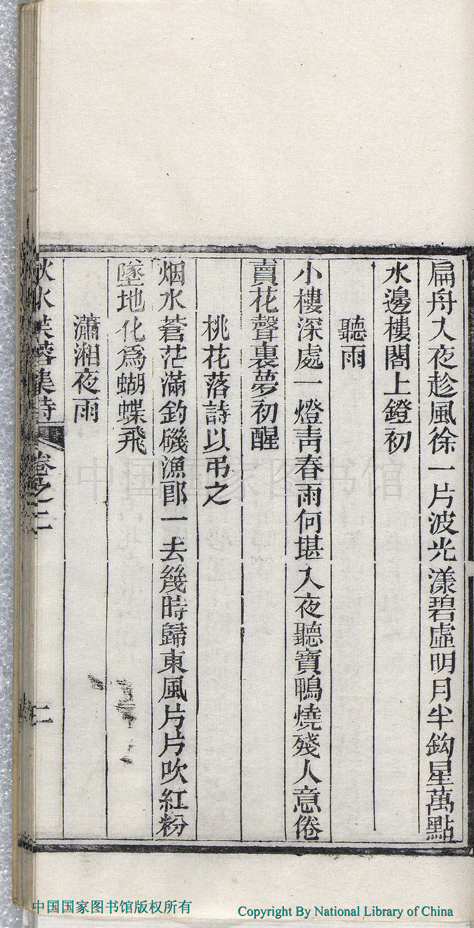 扁舟入夜趁風徐一片波光漾碧虛明月半鈎星萬點
水邊樓閣上鐙初
聽雨
小樓深處一燈青春雨何堪入夜聽寶鴨燒殘人意倦
賣花聲裏夢初醒
桃花落詩以弔之
烟水蒼茫滿釣磯漁郎一去幾時歸東風片片吹紅粉
墜地化爲蝴蝶飛
瀟湘夜雨
秋水芙蓉集詩 卷之二 二
中国国家图书馆
中国国家图书馆版权所有
Copyright By National Library of China